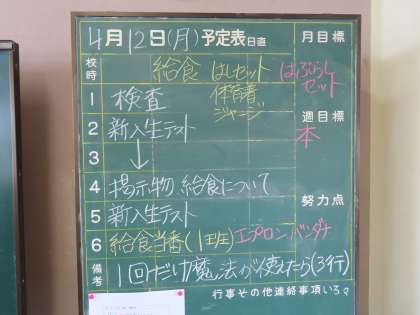 4月12日(月) 予定表 日直 月目標
校時 給食 はしセット はぶらしセット
1 検査 体育着 ジャージ
2 新入生テスト 週目標
本
3 ↓
4 掲示物、給食について 努力点
5 新入生テスト
6 給食当番(1班) エプロン、バンダナ
備考 1回だけ魔法が使えたら(3行)
行事その他連絡事項いろいろ